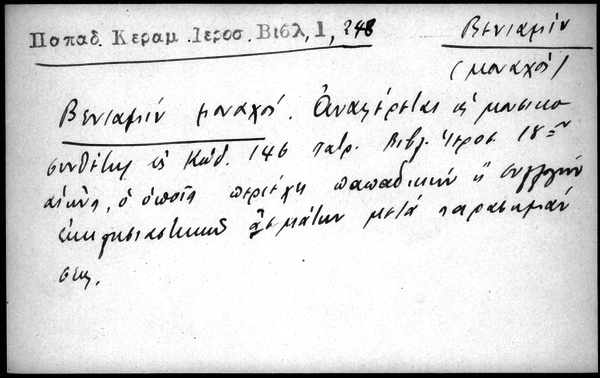 Παπαδ. Κεραμ. Ιεροσ. Βιβλ, 1, 248
Βενιαμίν
(μοναχός)
Βενιαμίν μοναχός. Ἀναφέρεται ὡς μουσικο-
συνθέτης ἐν Κώδ. 146 πατρ. Βιβλ. Ἱεροσ. 18ου
αἰῶνος, ὁ ὁποῖος περιέχει παπαδικήν ἤ συλλογήν
ἐκκλησιαστικῶν ᾀσμάτων μετά παρασημάν
σεως.